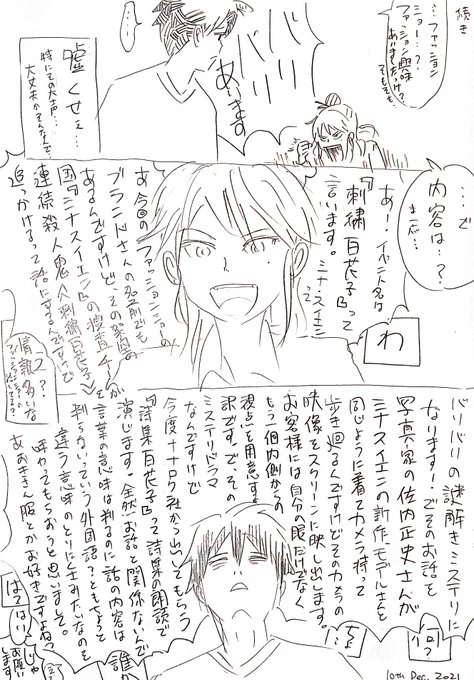 続き
…ファッション
ショー…?
ファッション興味
あいますだっけ?
そもそも
バリバリ
あります
……
嘘くせぇ…
特にその大声…
大丈夫かそんなんで
…で
内容は…?
まだ…
あ!イベント名は
『刺繍百花子』って
言います。
ミナスイエンて
わ
あ今回のファッションショーの
ブランドさんの名前でも
あるんですけど、その架空の
国『ミナスイエン』の捜査チームが
連続殺人鬼『刺繍百花子』を
追っかけるって話にするんですって
え?
情報多いな
バリバリの謎解きミステリに
なります!でそのお話を
写真家の佐内正史さんが
ミナスイエンの新作モデルさんと
同じように着てカメラ持って
歩き廻るんですけどそのカメラの
映像をスクリーンに映し出します。
お客様には自分の眼だけでなく
もう一個内側からの
視点を用意する
訳です。で、その
ミステリドラマ
なんですけど
今度ナナロク社から出してもらう
『詩集百花子』って詩集の朗読で
演じます。全然お話と関係ないんで
言葉の意味は判るのに話の内容は
判らないっていう外国語ってもちょっと
違う意味のとりにくさみたいなのを
味わってもらおうと思いまして。
あおきさん服とかお好きですよねっ
何?
誰か
はてはい
じゃ
お願い
します
10th Dec. 2021